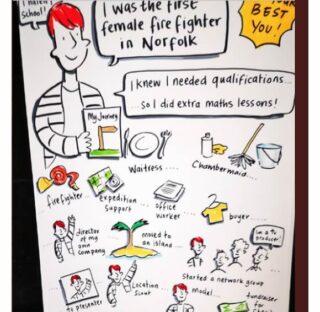 school!!
I was the first
female fire fighter
in Norfolk
BEST
YOU!
I knew I needed qualifications...
...so I did extra maths lessons!
My Journey
Waitress....
Chambermaid....
firefighter
expedition
support
office
worker
buyer....
director
of my
own
company
moved to
an island
I'm a TV
producer
started a network group
tv presenter
Location
Scout
model...
fundraiser
for